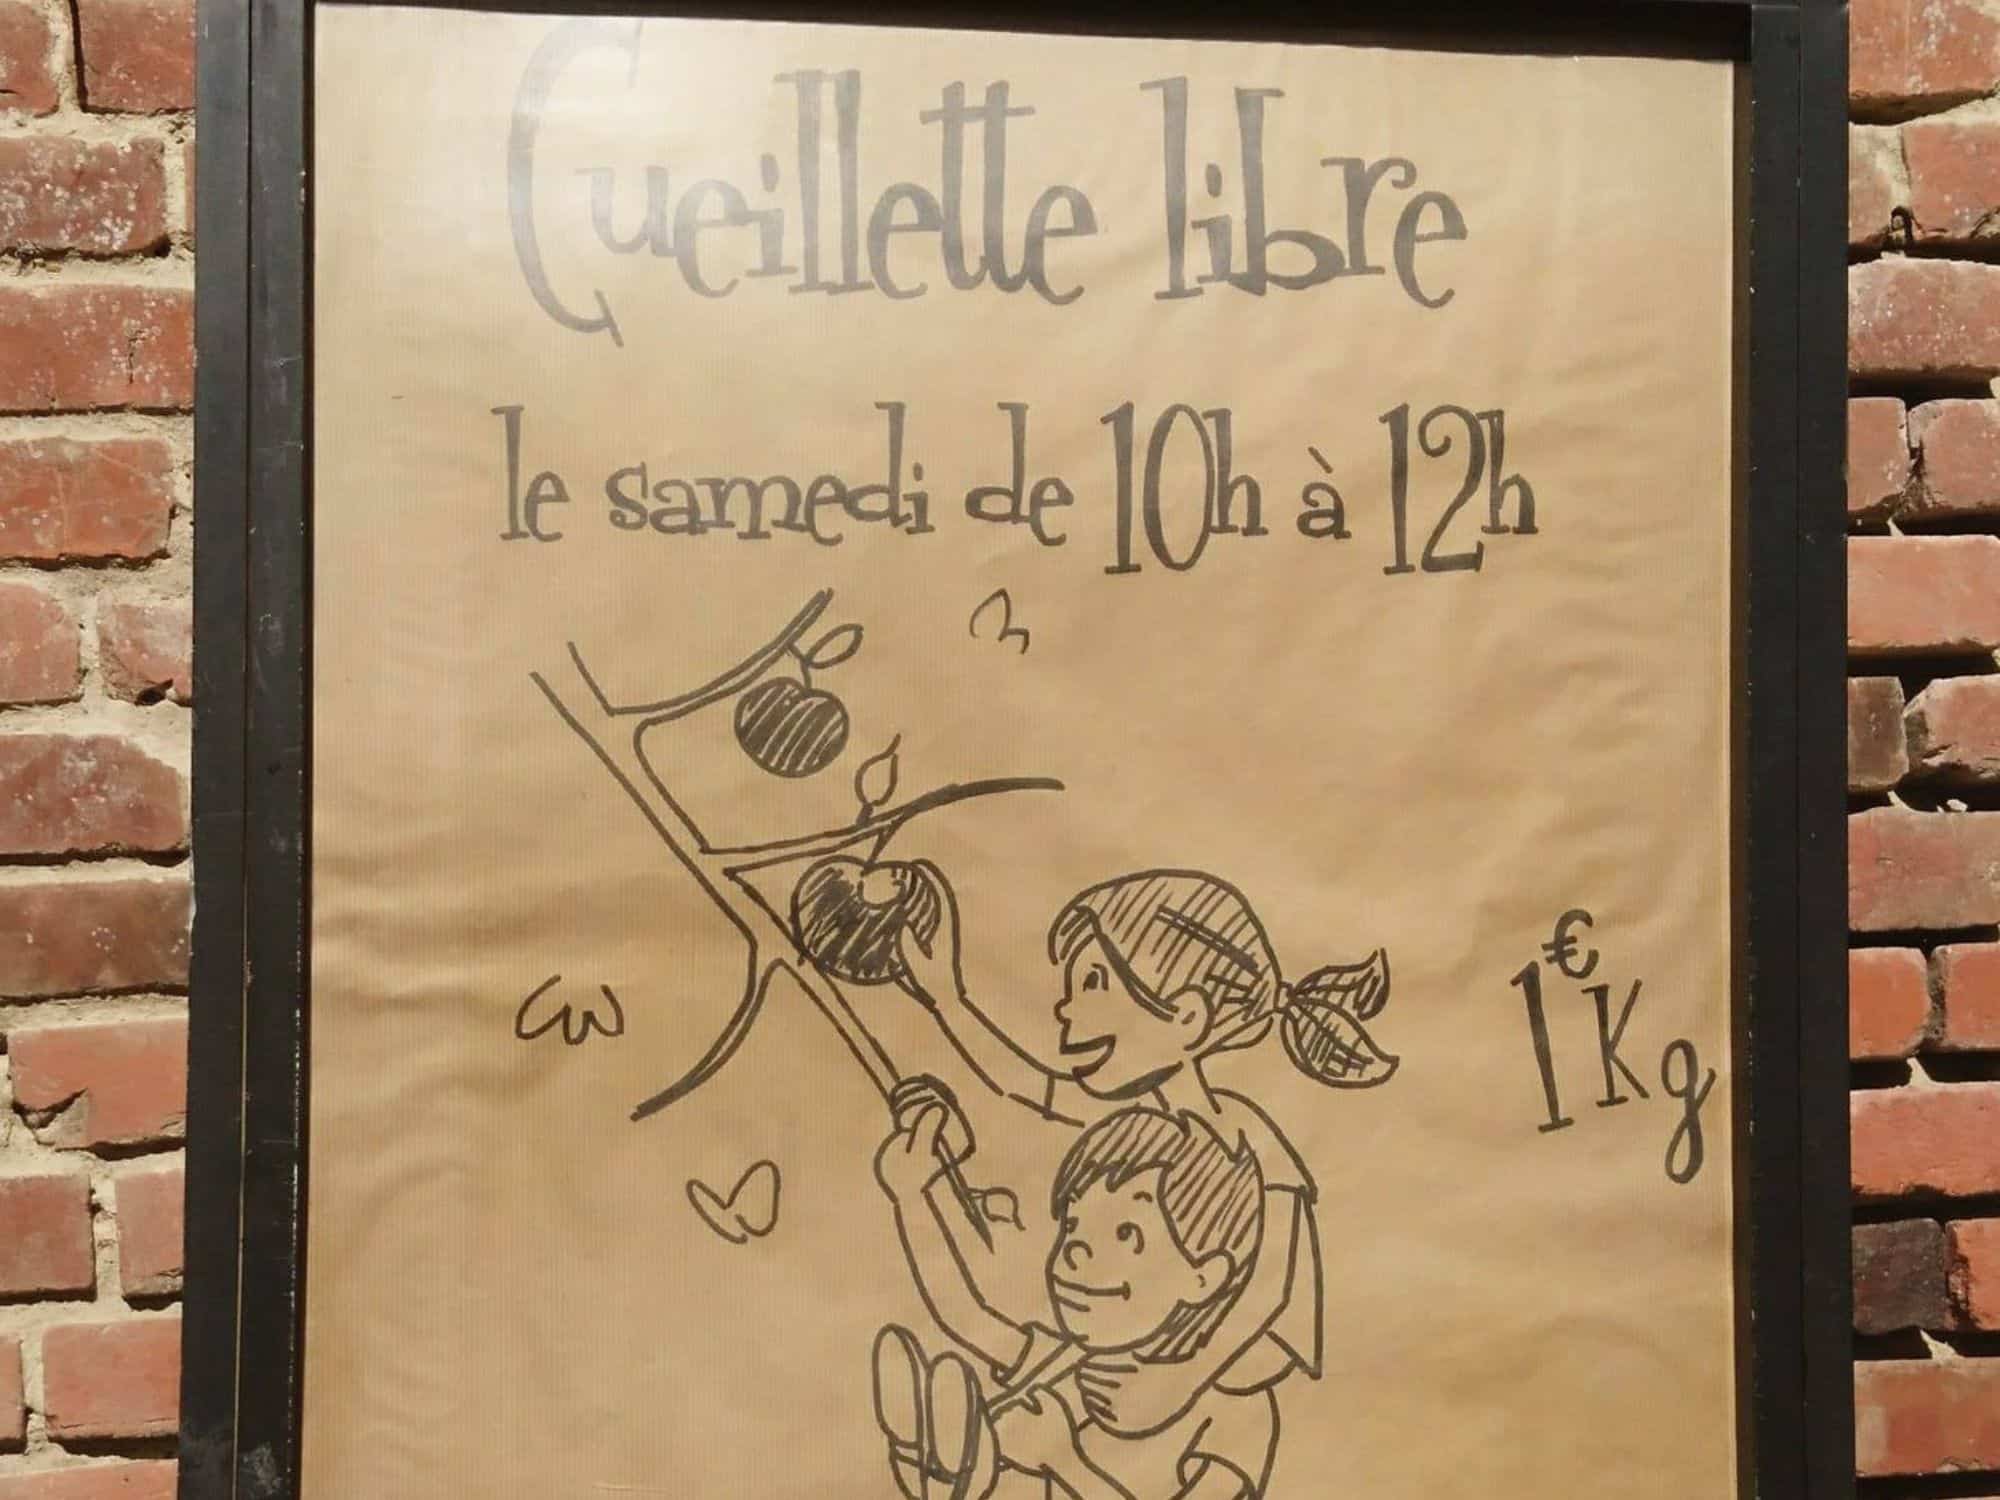 Cueillette libre
le samedi de 10h à 12h
1€ Kg